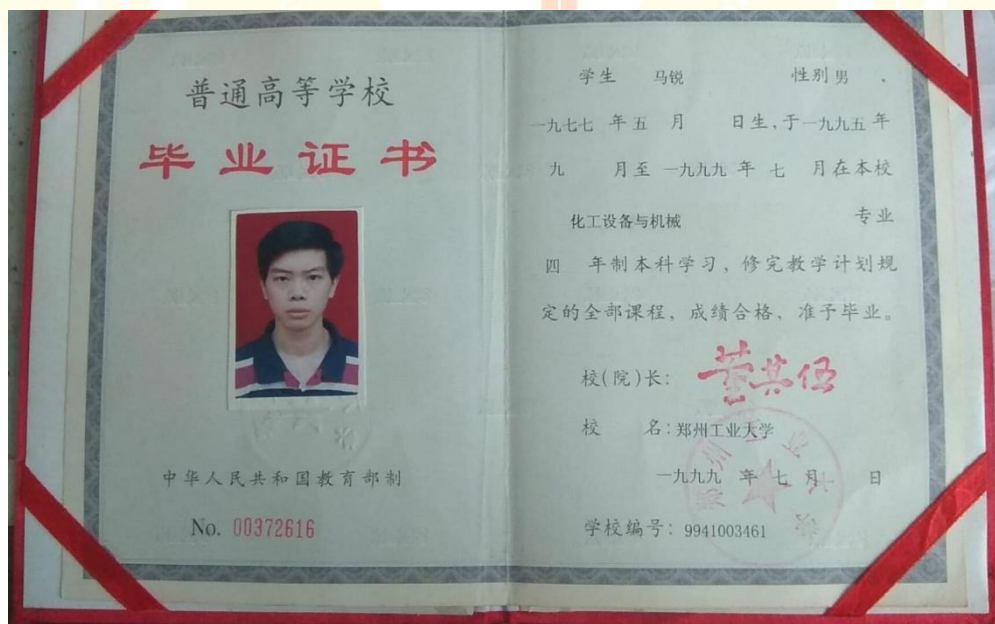 普通高等学校
毕业证书
中华人民共和国教育部制
No. 00372616
学生 马锐 性别 男 、
一九七七 年 五 月 日生,于 一九九五 年
九 月至 一九九九 年 七 月在本校
化工设备与机械 专业
四 年制本科学习、修完教学计划规
定的全部课程、成绩合格、准予毕业。
校(院)长: 董其伍
校 名: 郑州工业大学
一九九九 年 七 月 日
学校编号: 9941003461